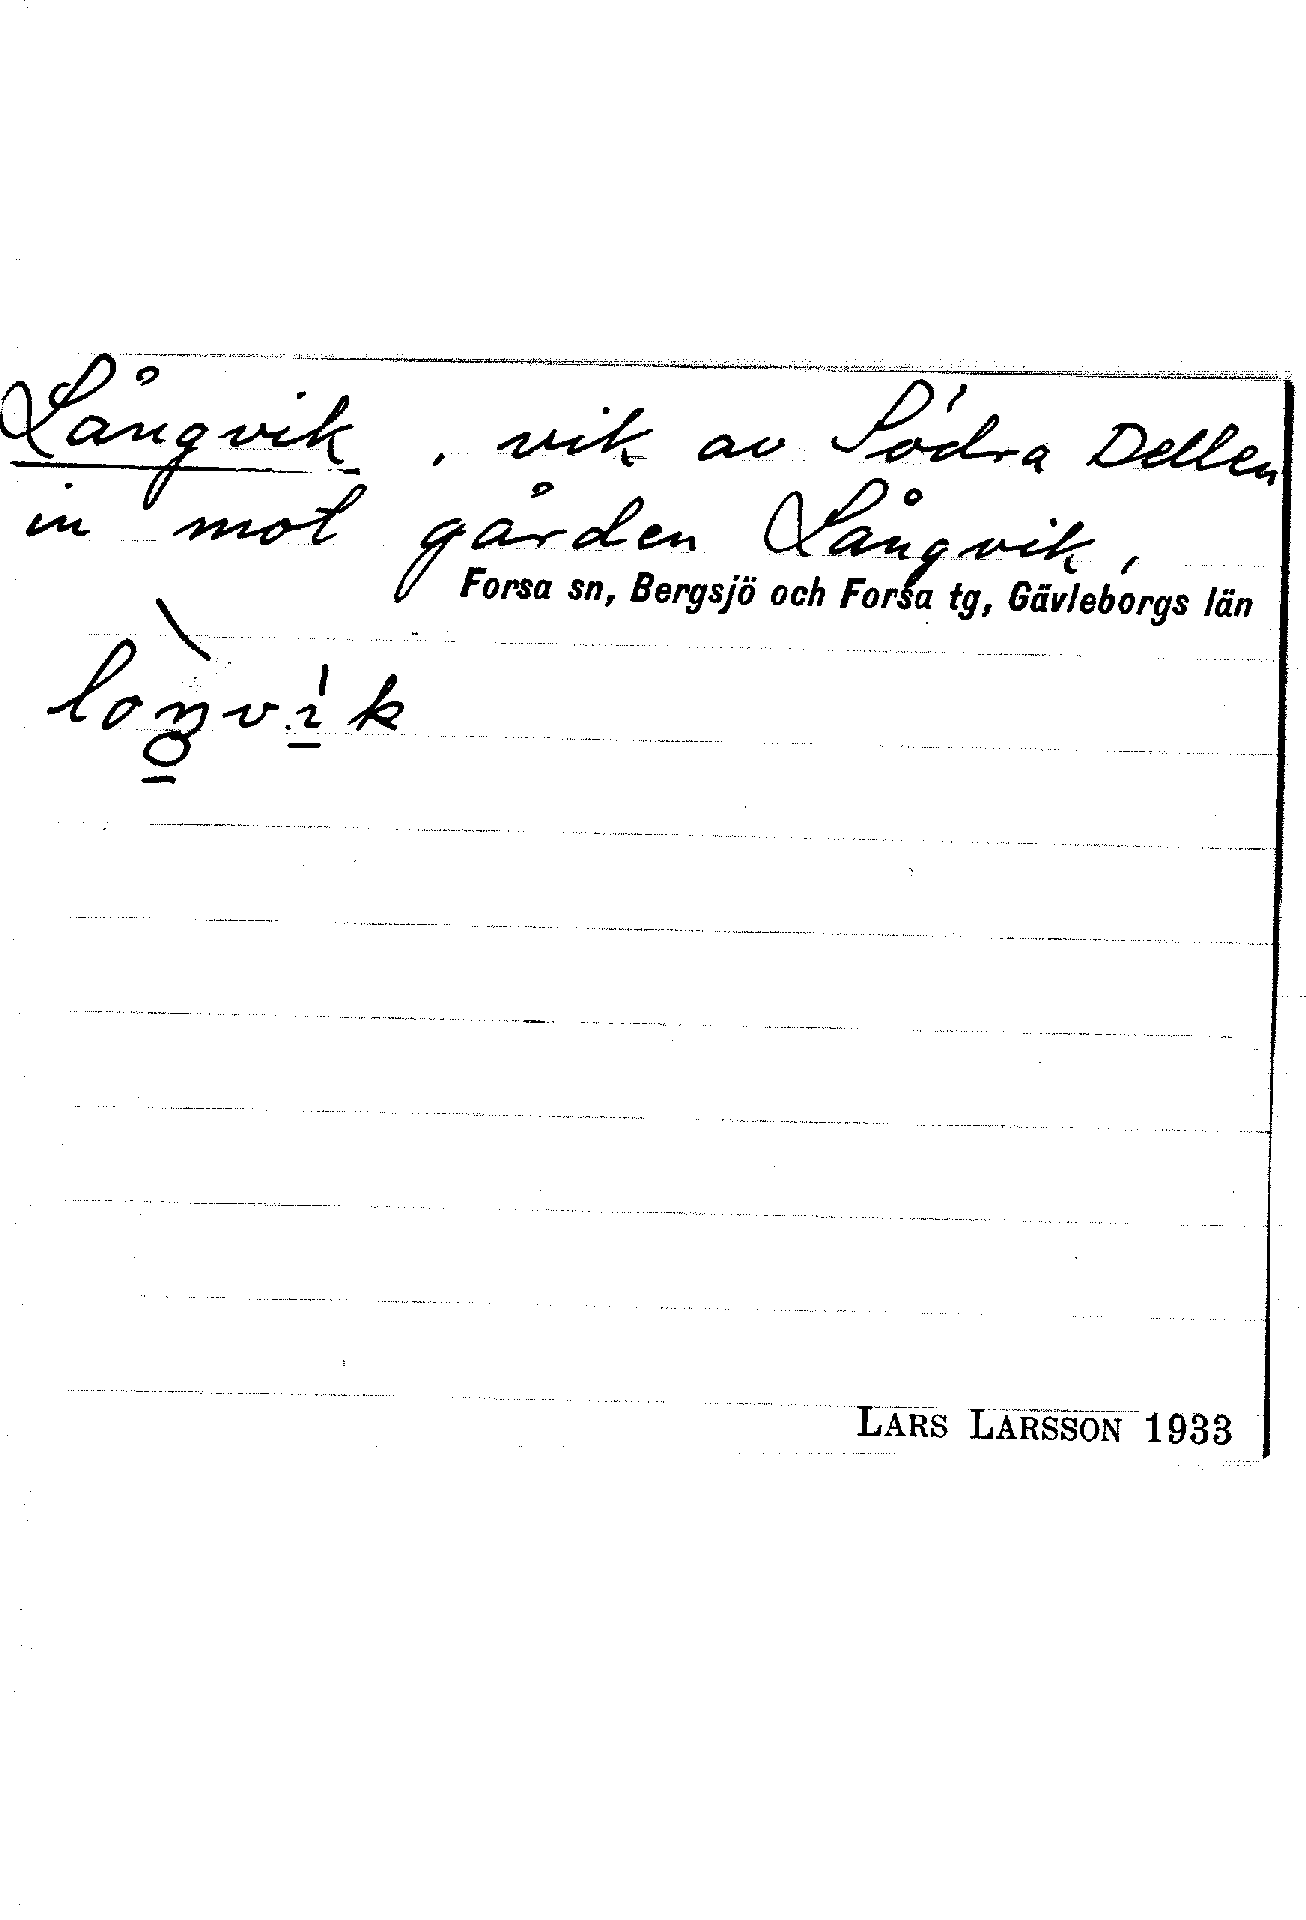 Långvik, vik av Södra Dellen
in mot gården Långvik,
Forsa sn, Bergsjö och Forsa tg, Gävleborgs län
LARS LARSSON 1933